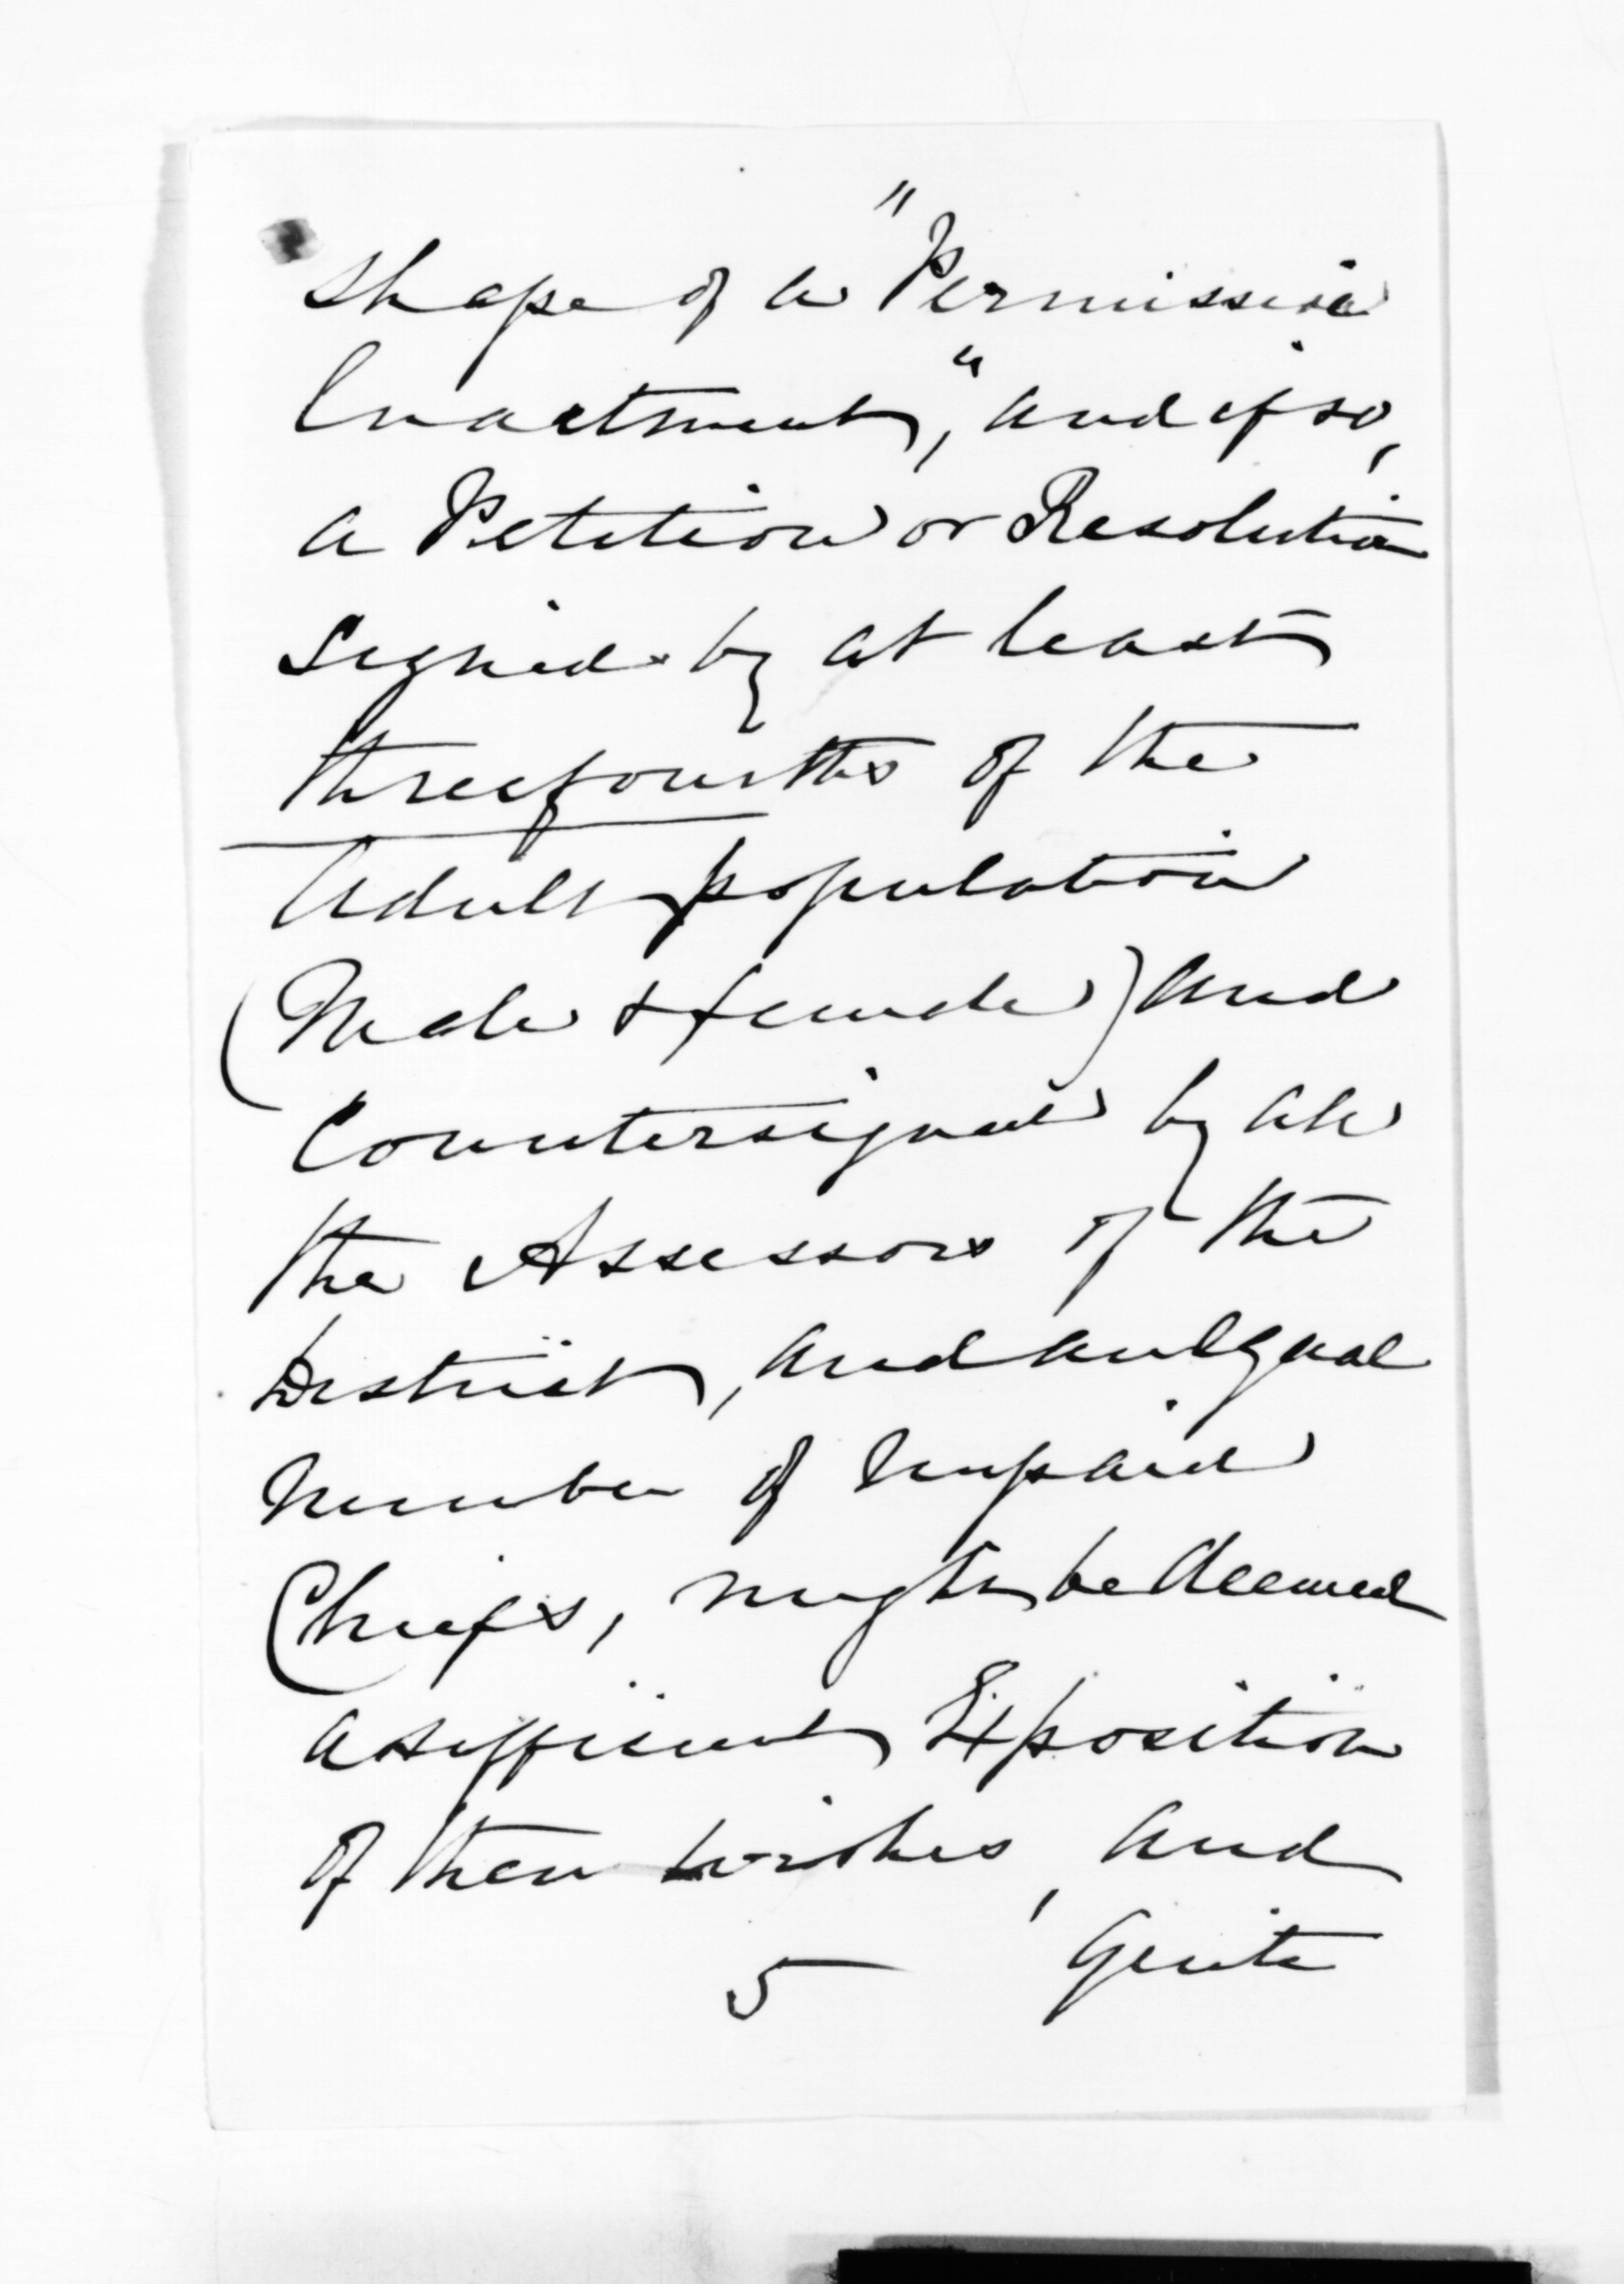 shape of a "Permissive
Enactment," and if so,
a Petition or Resolution
signed by at least
threefourths of the
Adult population
(Male & female) and
Countersigned by all
the Assessors of the
District, and an Equal
Number of Unpaid
Chiefs, might be deemed
a sufficient Exposition
of their wishes, and
quite
5